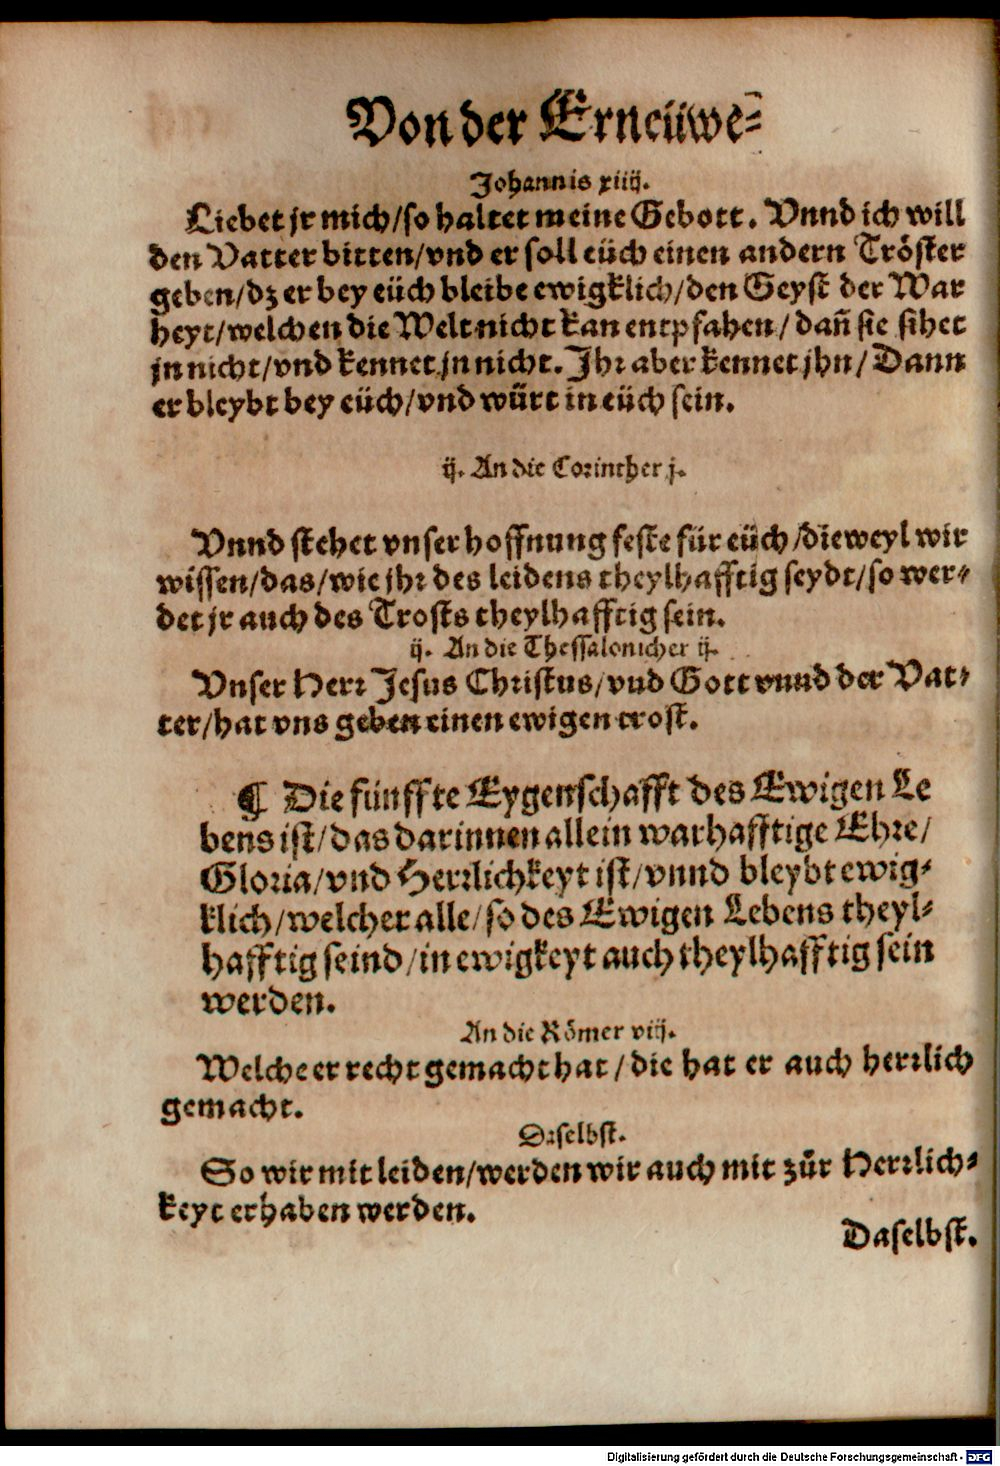 Von der Erneüwe-
Johannis xiiij.
Liebet jr mich/so haltet meine Gebott. Vnnd ich will
den Vatter bitten/vnd er soll eüch einen andern Tröster
geben/dz er bey eüch bleibe ewigklich/den Geyst der War
heyt/welchen die Welt nicht kan entpfahen/dañ sie sihet
jn nicht/vnd kennet jn nicht. Jhr aber kennet jhn/Dann
er bleybt bey eüch/vnd würt in eüch sein.
ij. An die Corinther j.
Vnnd stehet vnser hoffnung feste für eüch/dieweyl wir
wissen/das/wie jhr des leidens theylhafftig seydt/so wer-
det jr auch des Trosts theylhafftig sein.
ij. An die Thessalonicher ij.
Vnser Herr Jesus Christus/vnd Gott vnnd der Vat-
ter/hat vns geben einen ewigen trost.
¶ Die fünffte Eygenschafft des Ewigen Le
bens ist/das darinnen allein warhafftige Ehre/
Gloria/vnd Herrlichkeyt ist/vnnd bleybt ewig-
klich/welcher alle/so des Ewigen Lebens theyl-
hafftig seind/in ewigkeyt auch theylhafftig sein
werden.
An die Römer viij.
Welche er recht gemacht hat/die hat er auch herrlich
gemacht.
Daselbst.
So wir mit leiden/werden wir auch mit zůr Herrlich-
keyt erhaben werden.
Daselbst.
Digitalisierung gefördert durch die Deutsche Forschungsgemeinschaft - DFG